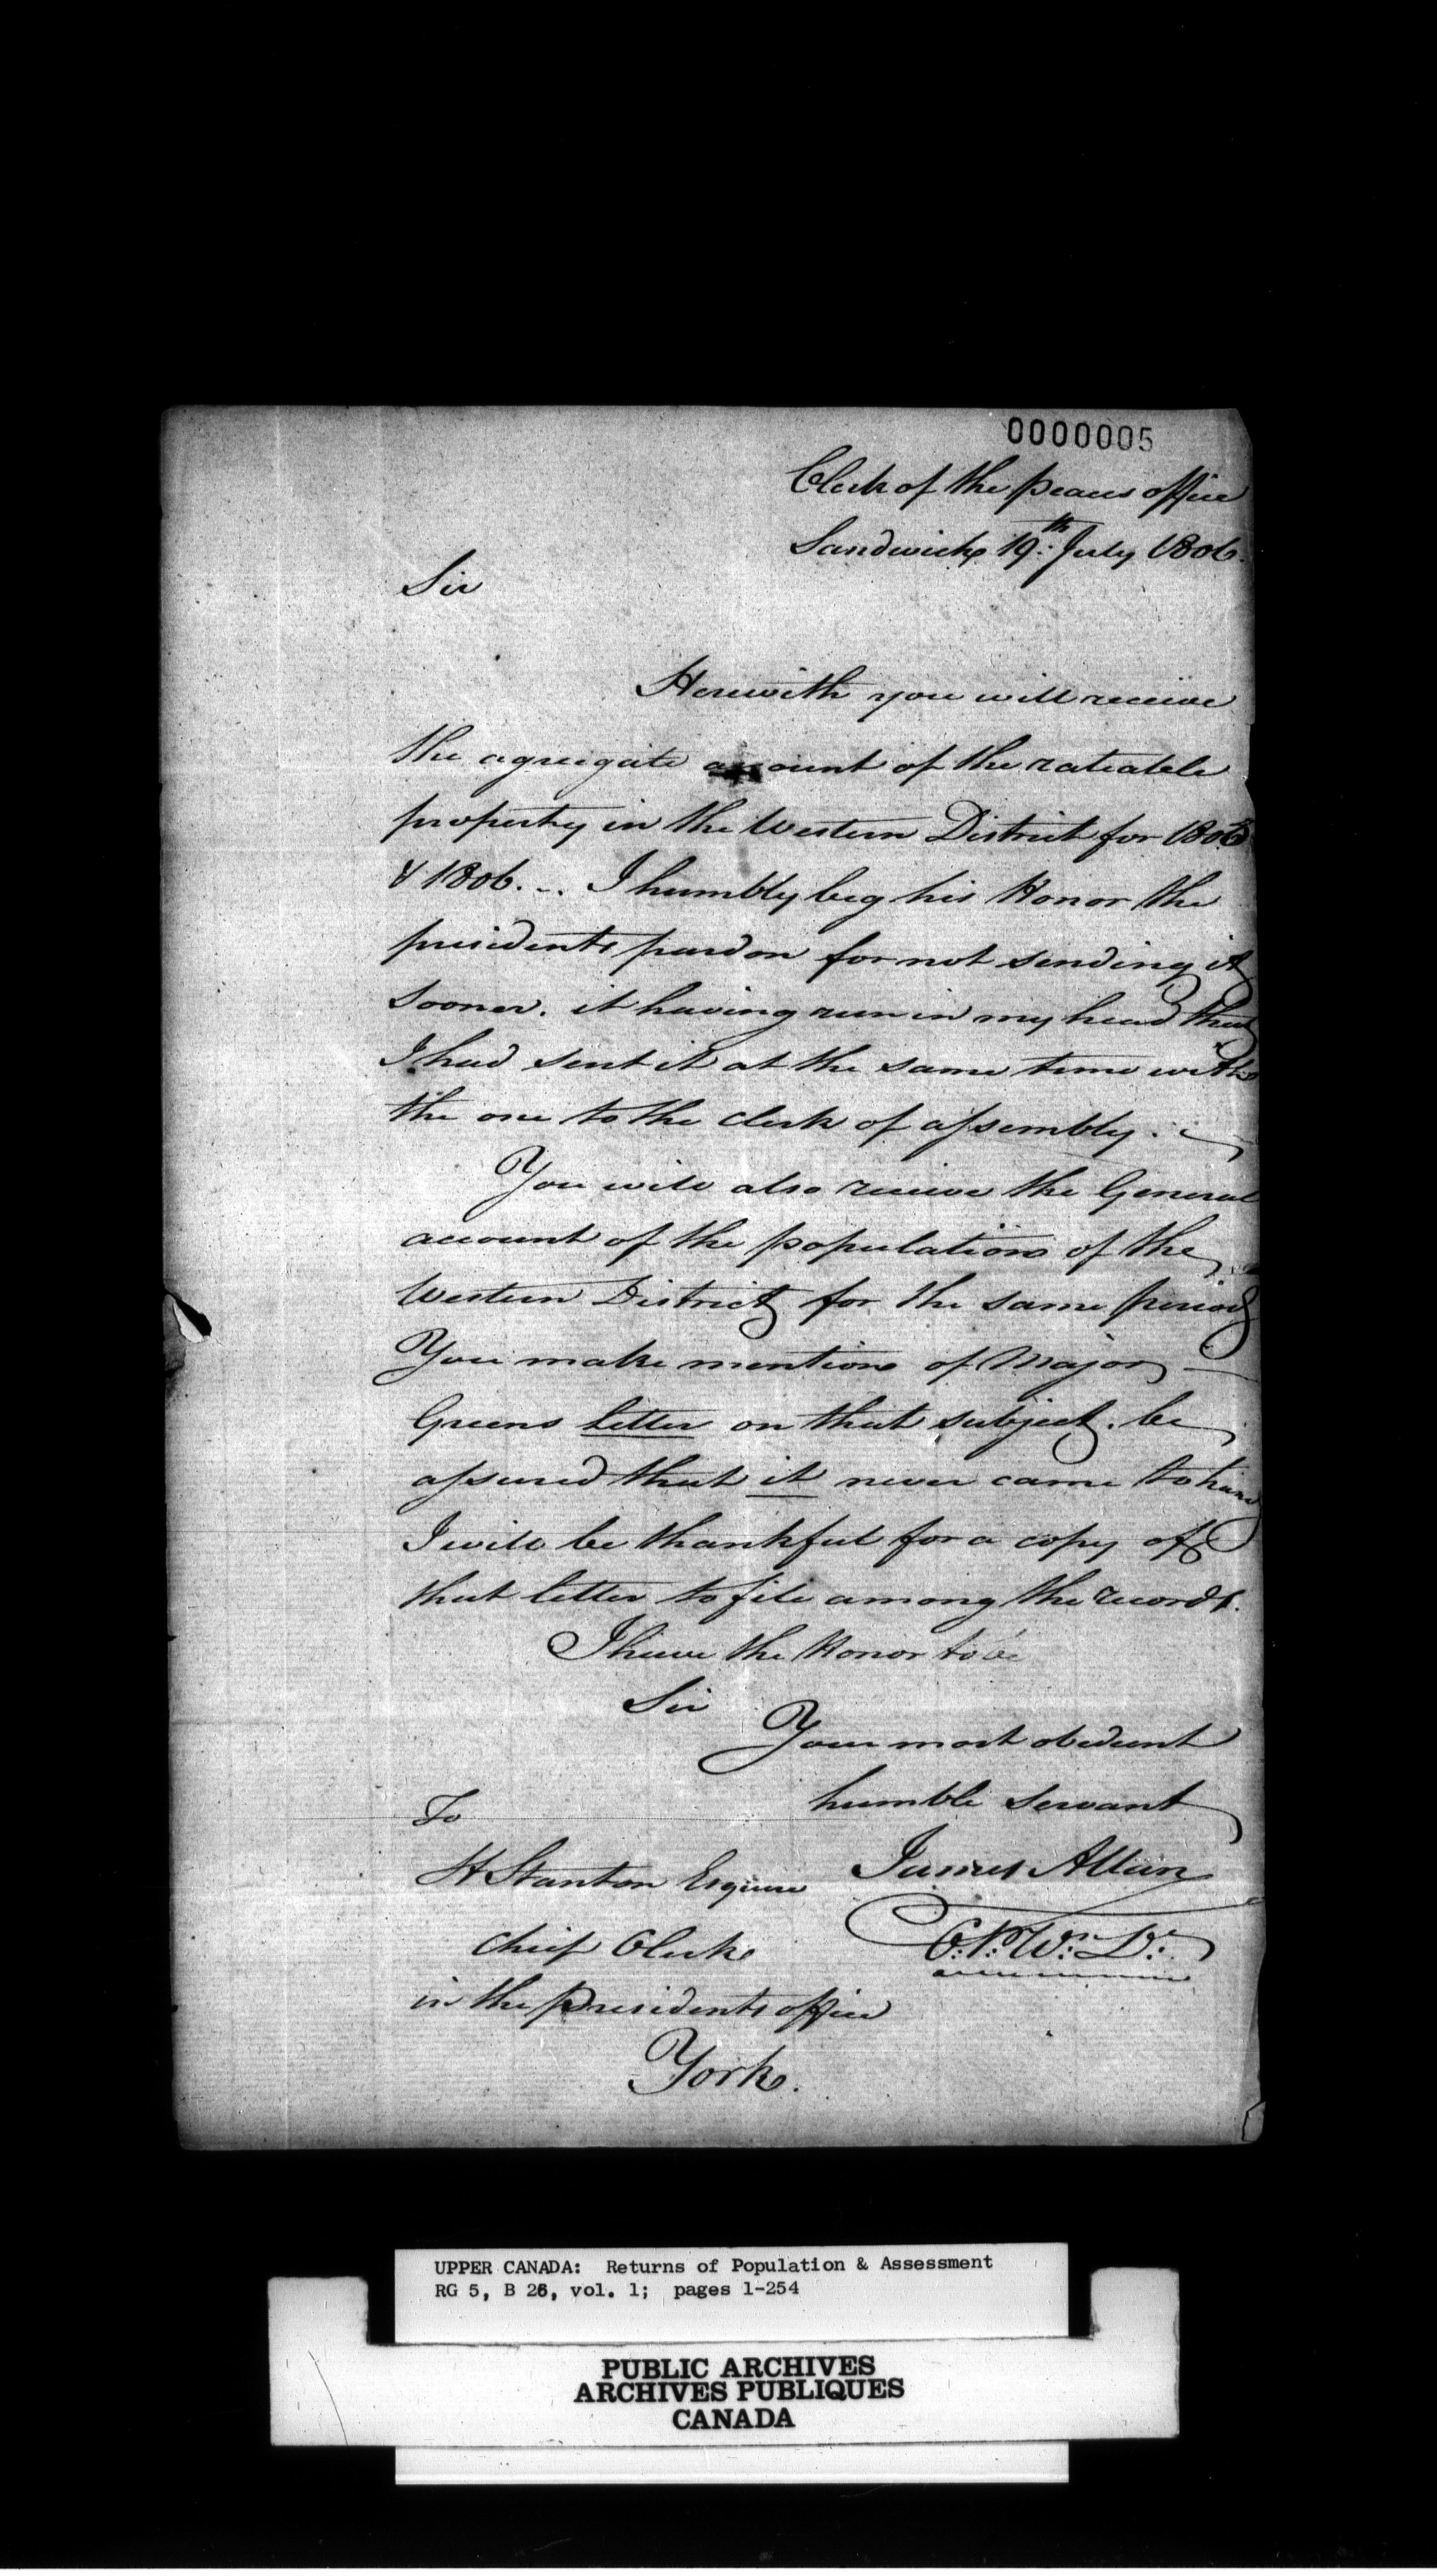 0000005
Clerk of the peaces office
Sandwich 19th July 1806.
Sir
Herewith you will receive
the agreegate account of the rateable
property in the Western District for 1805
& 1806. -. I humbly beg his Honor the
presidents pardon for not sending it
sooner. it having run in my head that
I had sent it at the same time with
the one to the clerk of assembly.
You will also receive the General
account of the population of the
Western District for the same period
You make mention of Major
Greens letter on that subject. be
assured that it never came to hand
I will be thankful for a copy of
that letter to file among the records.
I have the Honor to be
Sir
Your most obedient
humble servant
To
H Stanton Esquire
James Allan
chief Clerk
C.P. Wn. Dt.
in the presidents office
York.
UPPER CANADA: Returns of Population & Assessment
RG 5, B 26, vol. 1; pages 1-254
PUBLIC ARCHIVES
ARCHIVES PUBLIQUES
CANADA